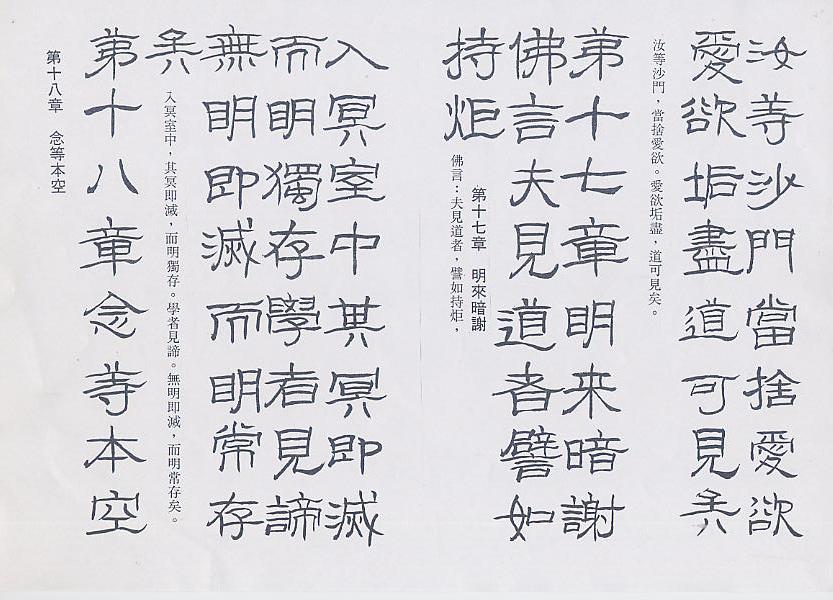 汝等沙門當捨愛欲
愛欲垢盡道可見矣
汝等沙門，當捨愛欲。愛欲垢盡，道可見矣。
第十七章明来暗謝
第十七章　明來暗謝
佛言夫見道者譬如
持炬
佛言：夫見道者，譬如持炬，
入冥室中其冥即滅
而明獨存學者見諦
無明即滅而明常存
矣
入冥室中，其冥即滅，而明獨存。學者見諦。無明即滅，而明常存矣。
第十八章念等本空
第十八章　念等本空